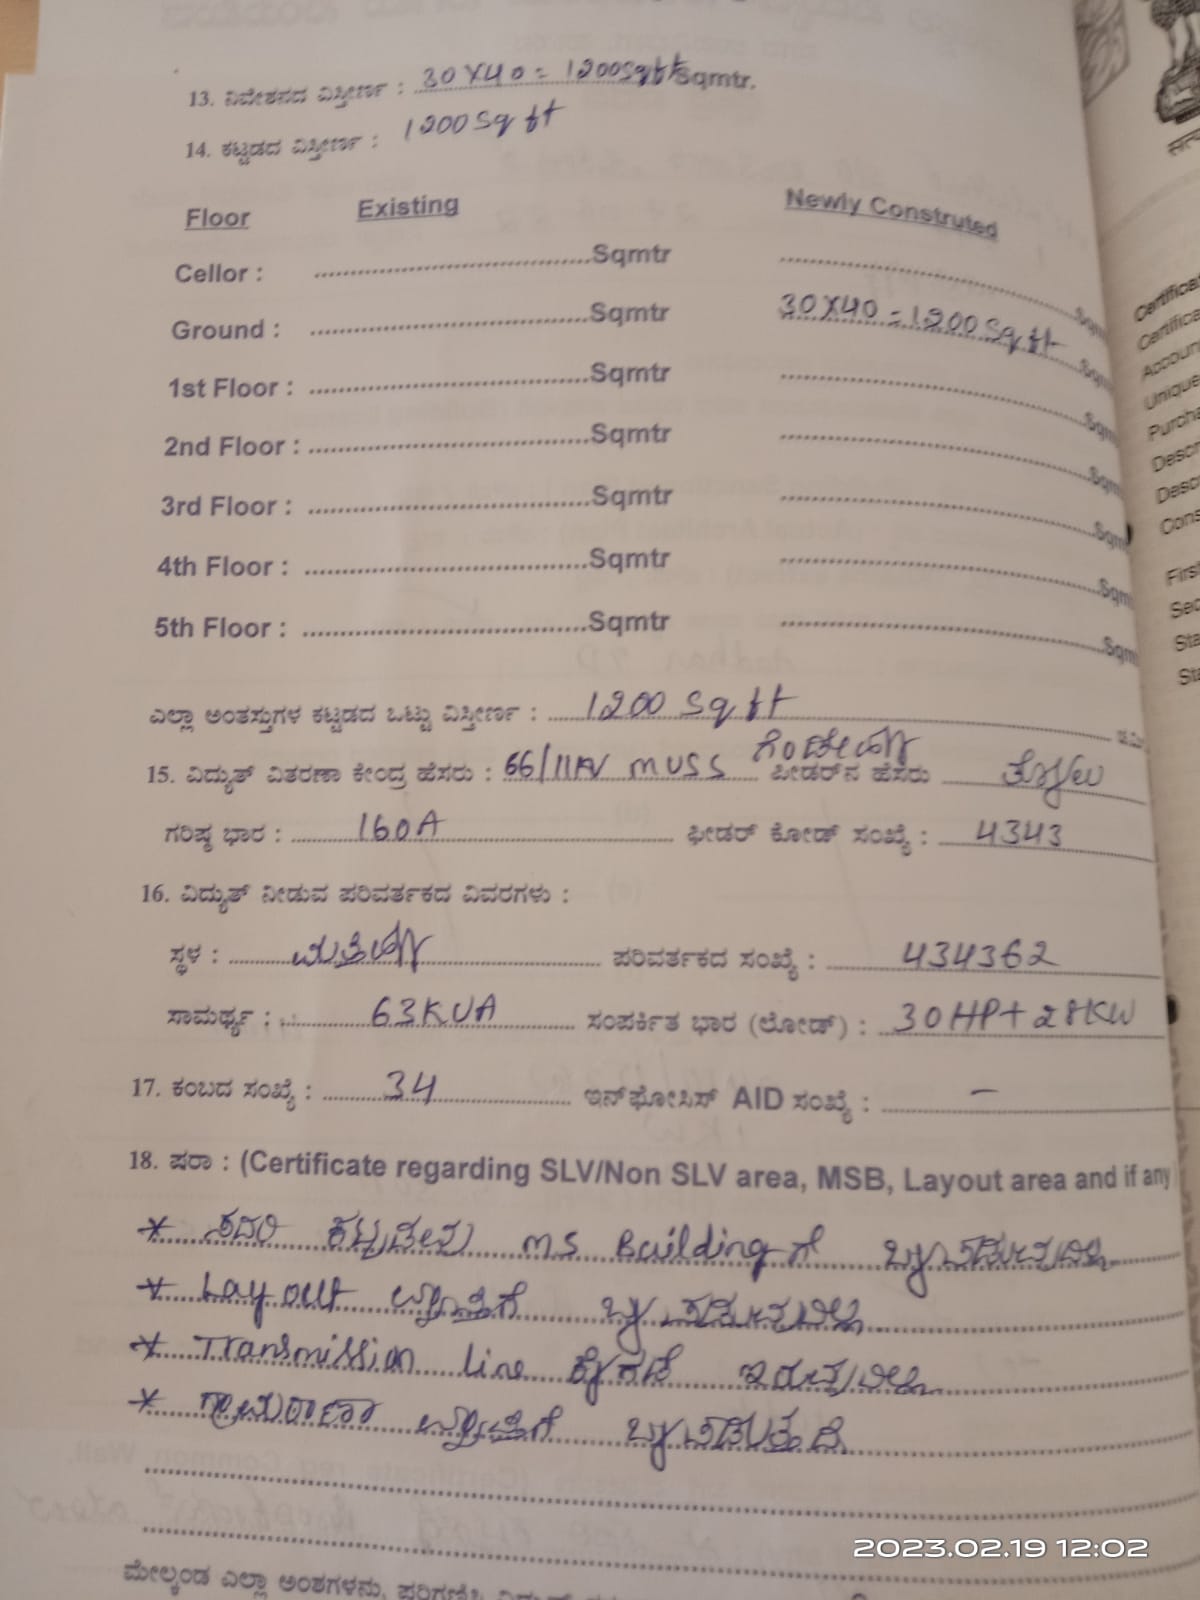 13. ನಿವೇಶನದ ವಿಸ್ತೀರ್ಣ : 30X40 = 1200Sqft Sqmtr.
14. ಕಟ್ಟಡದ ವಿಸ್ತೀರ್ಣ : 1200 Sq ft
Floor Existing Newly Constructed
Cellor : ..........Sqmtr ..........Sqm
Ground : ..........Sqmtr 30X40 = 1200 Sq ft Sqm
1st Floor : ..........Sqmtr ..........Sqm
2nd Floor : ..........Sqmtr ..........Sqm
3rd Floor : ..........Sqmtr ..........Sqm
4th Floor : ..........Sqmtr ..........Sqm
5th Floor : ..........Sqmtr ..........Sqm
ಎಲ್ಲಾ ಅಂತಸ್ತುಗಳ ಕಟ್ಟಡದ ಒಟ್ಟು ವಿಸ್ತೀರ್ಣ : 1200 Sq ft
15. ವಿದ್ಯುತ್ ವಿತರಣಾ ಕೇಂದ್ರ ಹೆಸರು : 66/11KV MUSS ಫೀಡರ್‌ನ ಹೆಸರು
ಗರಿಷ್ಠ ಭಾರ : 160A ಫೀಡರ್ ಕೋಡ್ ಸಂಖ್ಯೆ : 4343
16. ವಿದ್ಯುತ್ ನೀಡುವ ಪರಿವರ್ತಕದ ವಿವರಗಳು :
ಸ್ಥಳ : ಪರಿವರ್ತಕದ ಸಂಖ್ಯೆ : 434362
ಸಾಮರ್ಥ್ಯ : 63KVA ಸಂಪರ್ಕಿತ ಭಾರ (ಲೋಡ್) : 30HP+28KW
17. ಕಂಬದ ಸಂಖ್ಯೆ : 34 ಇನ್‌ಫೋಸಿಸ್ AID ಸಂಖ್ಯೆ : –
18. ಷರಾ : (Certificate regarding SLV/Non SLV area, MSB, Layout area and if any
* ಸದರಿ ಕಟ್ಟಡವು MS Building ಗೆ ಒಳಪಡುವುದಿಲ್ಲ
* Layout ವ್ಯಾಪ್ತಿಗೆ ಒಳಪಡುವುದಿಲ್ಲ
* Transmission line ಕೆಳಗಡೆ ಇರುವುದಿಲ್ಲ
* ಗ್ರಾಮಠಾಣಾ ವ್ಯಾಪ್ತಿಗೆ ಒಳಪಡುತ್ತದೆ
ಮೇಲ್ಕಂಡ ಎಲ್ಲಾ ಅಂಶಗಳನ್ನು ಪರಿಗಣಿಸಿ
2023.02.19 12:02